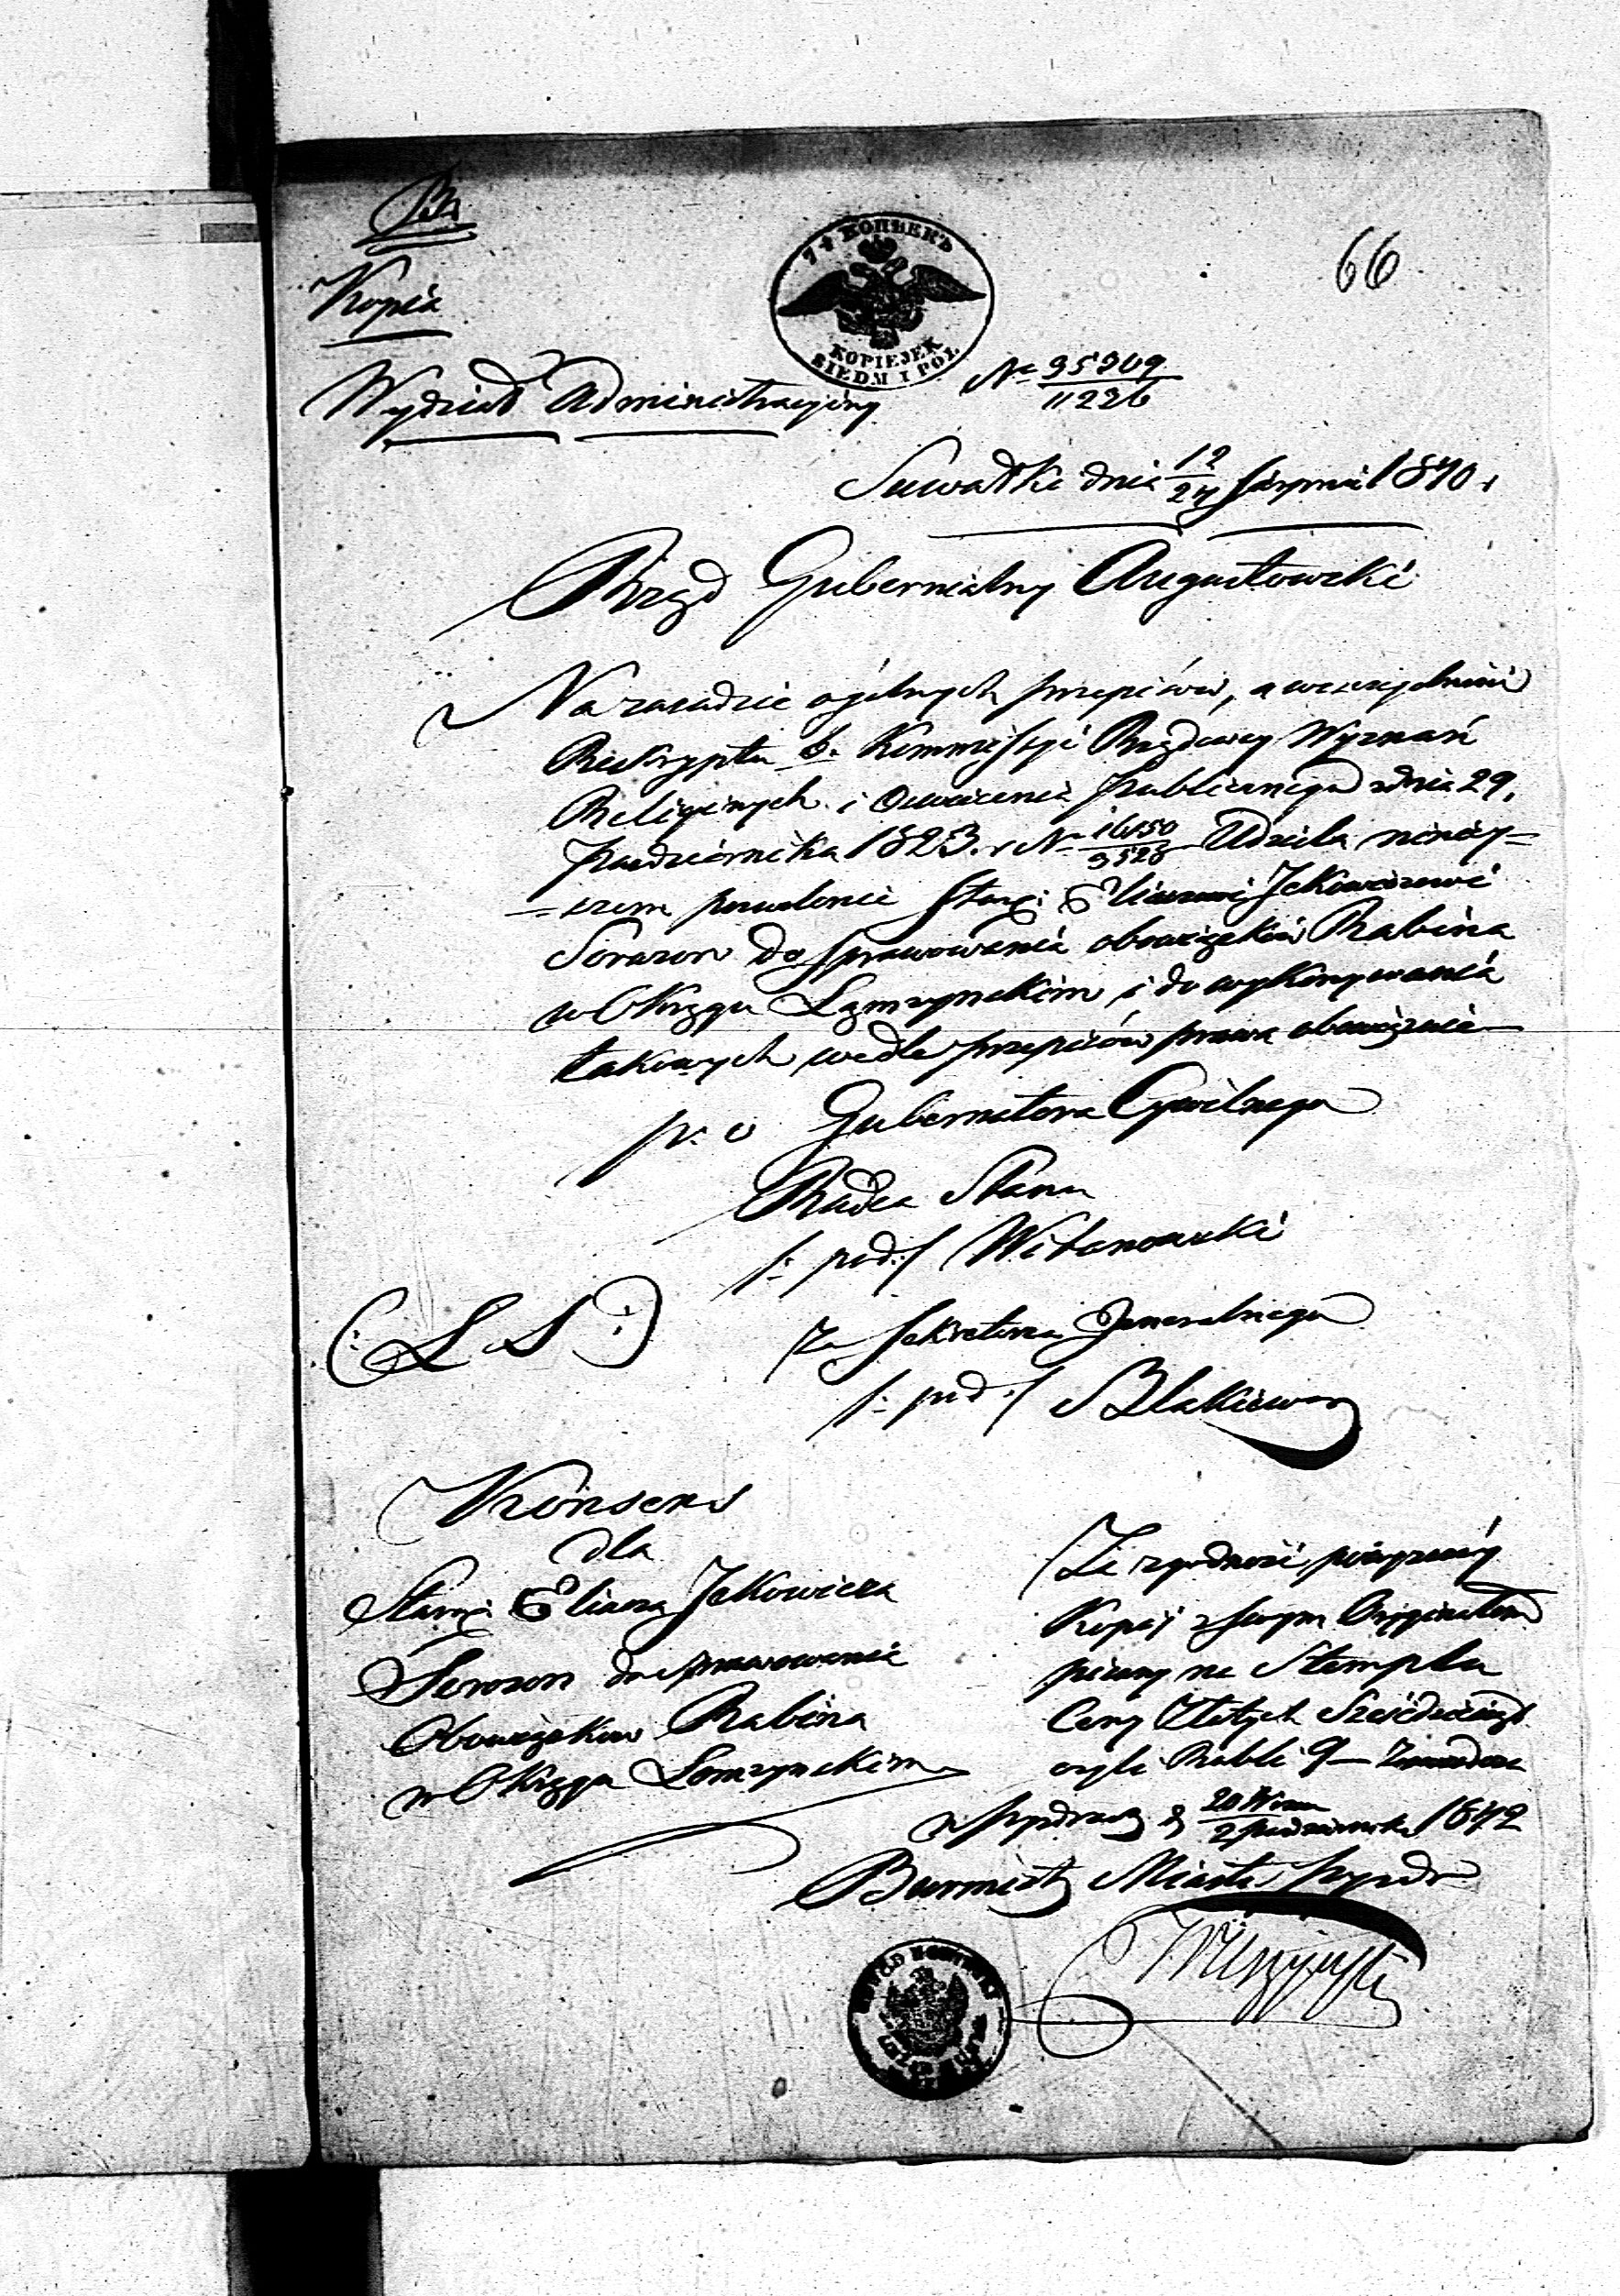 B.
Kopia
66
7½ КОПѢЕКЪ
KOPIEJEK
SIEDM I POŁ
Wydział Administracyiny
No 35309/11226
Suwałki dnia 12/24 Sierpnia 1840 r
Rząd Gubernialny Augustowski
Na zasadzie ogólnych przepisów, a w szczególności
Reskryptu b. Kommissyi Rządowey Wyznań
Religijnych i Oświecenia Publicznego z dnia 29.
Października 1823. r No 16150/3528 Udziela niniey=
=szem pozwolenie Starz: Eliaszowi Jckowiczowi
do sprawowania obowiązków Rabina
w Okręgu Łomzynskim i do wykonywania
takowych wedle przepisów prawa obowiązuie
p. o Gubernatora Cywilnego
Radca Stanu
/: pod :/ Witanowski
(: L S :)
za Sekretarza Jeneralnego
/: pod :/
Konsens
dla
Starz: Eliasza Jckowicza
do sprawowania
Obowiązków Rabina
w Okręgu Łomzynskim
Za zgodność powyzszéy
Kopij z swym Oryginałem
pisany na Stemplu
Ceny Złotych Sześćdziesiąt
czyli Rubli 9
d 20 Wrze/2 Października 1842
Burmistrz Miasta